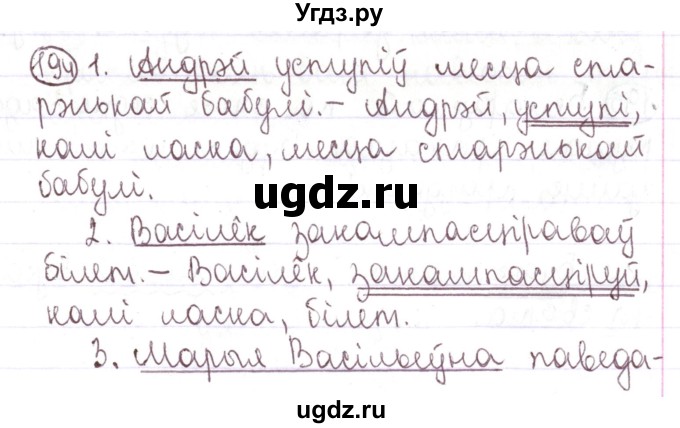 Угдз.ру
194 1. Андрэй уступіў месца ста-
рэнькай бабулі.– Андрэй, уступі,
калі ласка, месца старэнькай
бабулі.
ugdz.ru
2. Васілёк закампасціраваў
білет.– Васілёк, закампасціруй,
калі ласка, білет.
ugdz.ru
3. Марыя Васільеўна паведа-
ugdz.ru